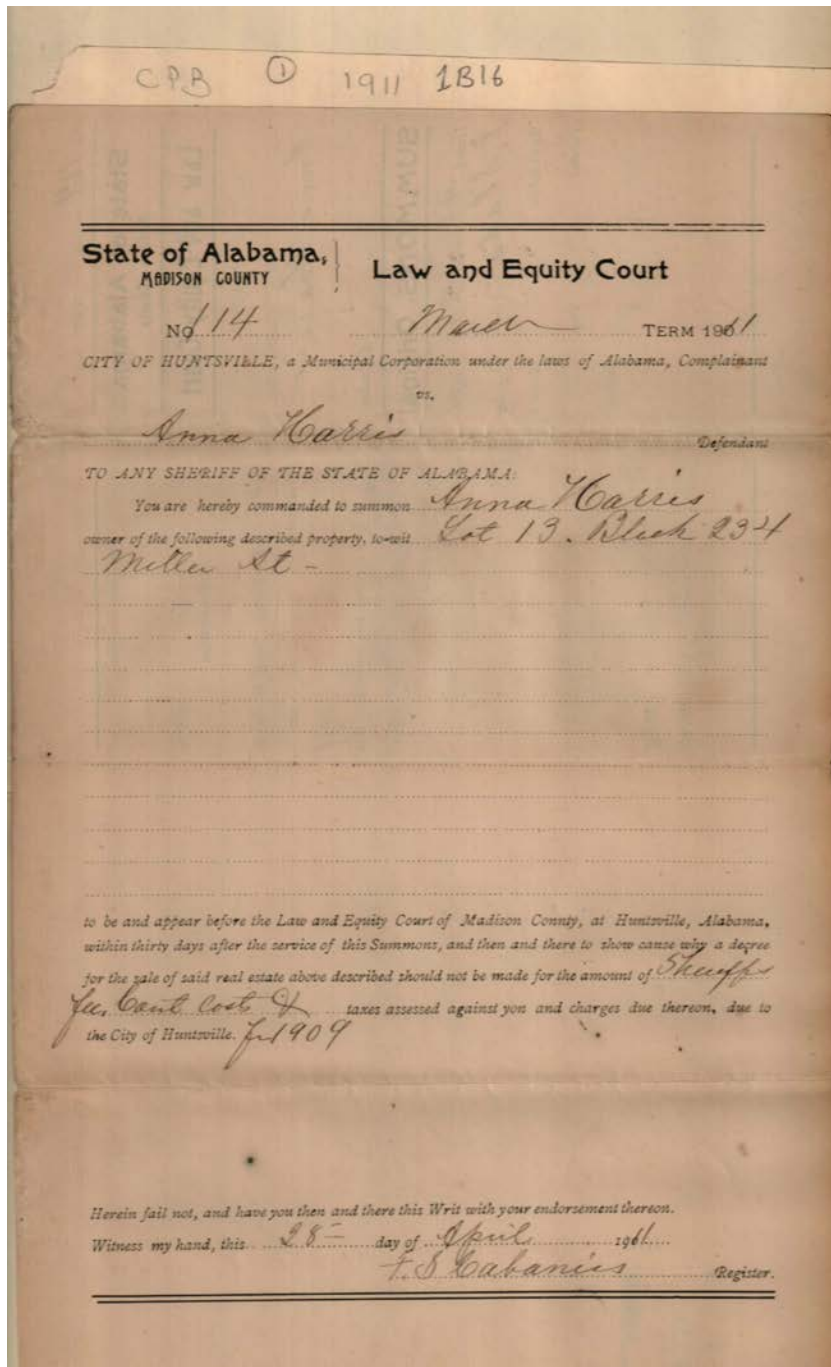 CPB ① 1911 1B16
State of Alabama, Law and Equity Court
MADISON COUNTY
No 114 March TERM 1911
CITY OF HUNTSVILLE, a Municipal Corporation under the laws of Alabama, Complainant
vs.
Anna Harris Defendant
TO ANY SHERIFF OF THE STATE OF ALABAMA:
You are hereby commanded to summon Anna Harris
owner of the following described property, to-wit Lot 13. Block 234
Miller St -
to be and appear before the Law and Equity Court of Madison County, at Huntsville, Alabama,
within thirty days after the service of this Summons, and then and there to show cause why a decree
for the sale of said real estate above described should not be made for the amount of Sheriffs
fee, Court Costs & taxes assessed against you and charges due thereon, due to
the City of Huntsville. for 1909
Herein fail not, and have you then and there this Writ with your endorsement thereon.
Witness my hand, this 28 - day of April 1911
Cabaniss Register.